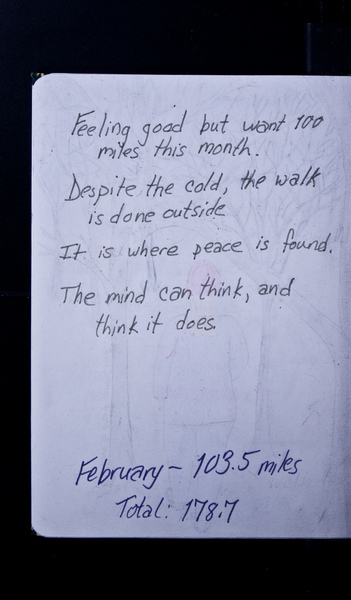 Feeling good but want 100
miles this month.
Despite the cold, the walk
is done outside
It is where peace is found.
The mind can think, and
think it does.
February - 103.5 miles
Total: 178.7